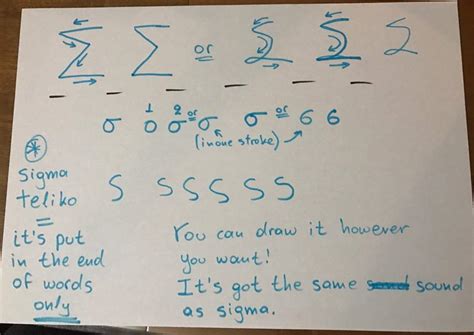 Σ Σ or Σ Σ Σ
1 2 or or
σ σ σ σ σ 6 6
(in one stroke)
*
Sigma
teliko
=
it's put
in the end
of words
only
ς ς ς ς ς ς
You can draw it however
you want!
It's got the same sound
as sigma.